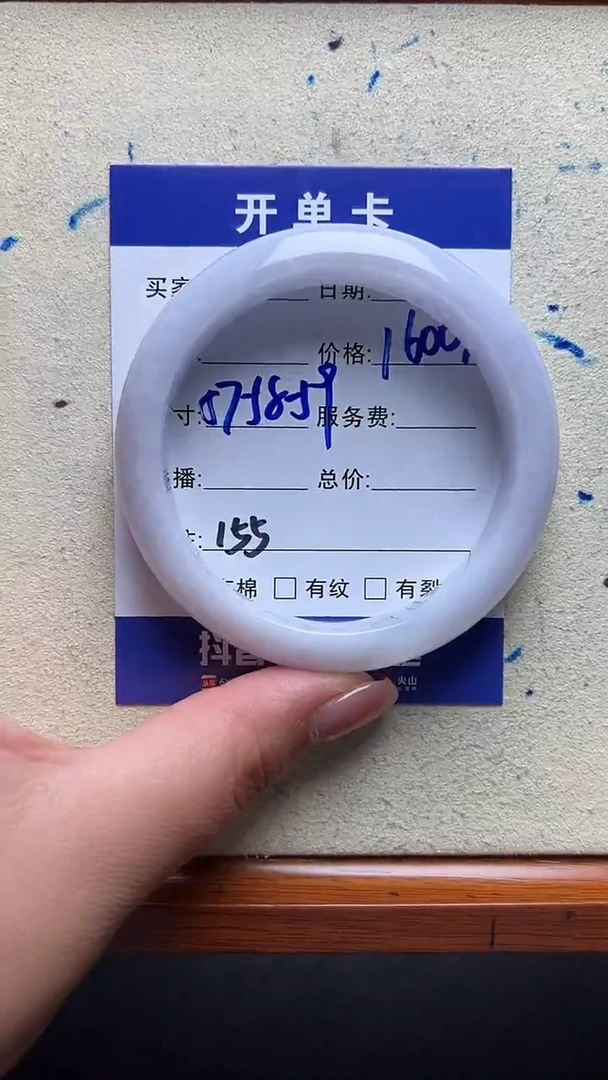 开单卡
买家 日期:
价格: 1600
寸: 575859 服务费:
播: 总价:
: 155
棉 □ 有纹 □ 有裂
抖音
头条 火山